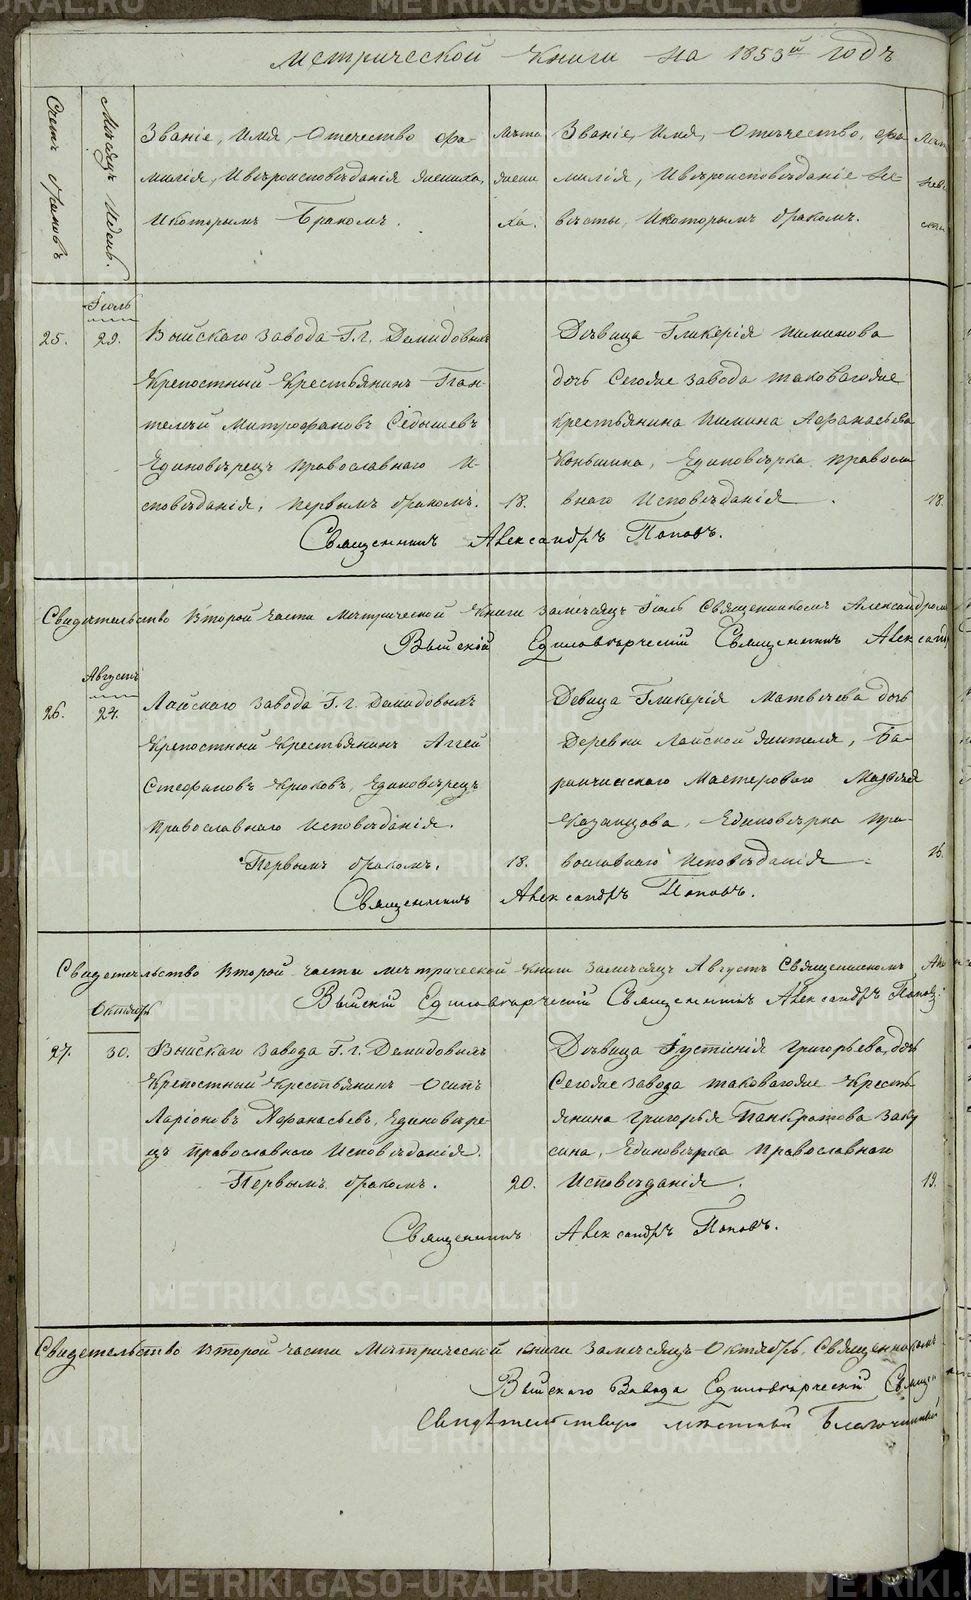 Метрической Книги на 1853й годъ
Счетъ браковъ
Месяцъ и день.
Званіе, Имя, Отечество фа-
милія, и вѣроисповѣданія жениха,
и которымъ Бракомъ.
лѣта
жени
ха.
Званіе, Имя, Отечество, фа
милія, и вѣроисповѣданіе не-
вѣсты, и которымъ бракомъ.
лѣт
невѣ
сты
Іюль
25.
29.
Выйскаго завода Г.г. Демидовыхъ
Крепостный Крестьянинъ Пан-
телей Митрофановъ Седышевъ
Единовѣрецъ православнаго И-
сповѣданія, первымъ бракомъ.
18.
Дѣвица Гликерія Пиминова
дочь Сегоже завода таковагоже
крестьянина Пимина Афанасьева
Коньшина, Единовѣрка правосла
внаго Исповѣданія.
18.
Священникъ Александръ Поповъ.
Свидетельство второй части Метрической Книги за месяцъ Іюль Священникомъ Александром
Выйскій Единоверческій Священникъ Александ
Августъ
26.
24.
Лайскаго завода Г.г. Демидовыхъ
Крепостный Крестьянинъ Аггей
Стефановъ Крюковъ, Единовѣрецъ
православнаго Исповѣданія.
Первымъ бракомъ.
18.
Девица Гликерія Матвѣева дочь
Деревни Лайской жителя, Ба-
ранчинскаго Мастероваго Матвея
Казанцова, Единовѣрка пра-
вославнаго Исповѣданія
16.
Священникъ Александръ Поповъ.
Свидетельство второй части метрической книги за месяцъ Августъ Священникомъ Але
Выйскій Единоверческій Священникъ Александръ Поповъ.
Октябрь
27.
30.
Выйскаго завода Г.г. Демидовыхъ
Крепостный Крестьянинъ Осипъ
Ларіоновъ Афанасьевъ, Единовѣре-
цъ православнаго Исповѣданія.
Первымъ бракомъ.
20.
Дѣвица Іустінія Григорьева дочь
Сегоже завода таковагоже Кресть
янина Григорья Панкратова Заку
сина, Единовѣрка Православнаго
Исповѣданія.
19.
Священникъ Александръ Поповъ.
Свидетельство второй части Метрической книги за месяцъ Октябрь, Священникомъ
Выйскаго Завода Единоверческій Священ
Свидѣтельствую местный Благочинный
METRIKI.GASO-URAL.RU